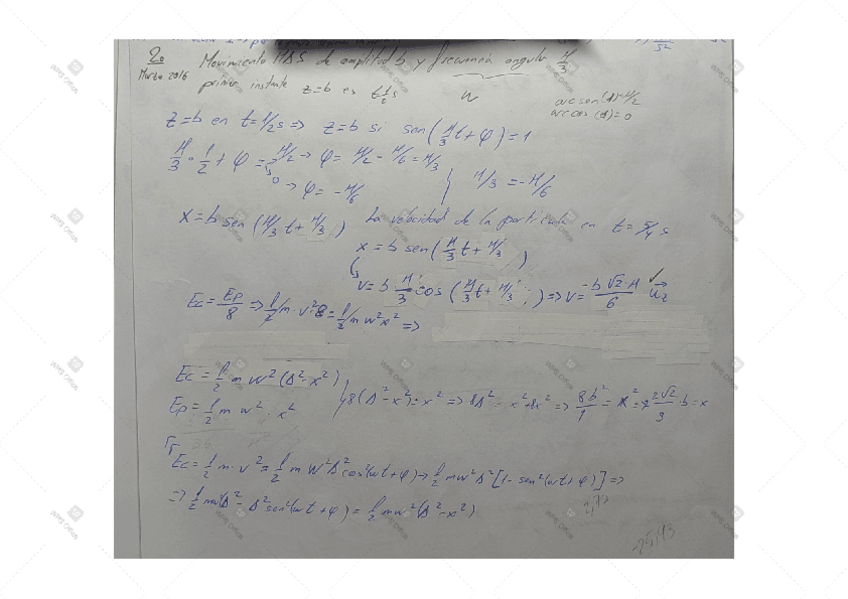 2.
Marzo 2016
Movimiento MAS de amplitud b y frecuencia angular π/3
primer instante z=b es t=1/2 s
w
arcsen(1)=π/2
arccos(1)=0
z=b en t=1/2 s => z=b si sen(π/3 t + φ) = 1
π/3 · 1/2 + φ = π/2 → φ = π/2 - π/6 = π/3
0 → φ = -π/6
π/3 = -π/6
x = b sen(π/3 t + π/3) La velocidad de la partícula en t = 5/4 s
x = b sen(π/3 t + π/3)
v = b π/3 cos(π/3 t + π/3) => v = -b√2·π/6
Ec = Ep/8 => 1/2 m·v²·8 = 1/2 m w² x² =>
Ec = 1/2 m w² (A² - x²)
Ep = 1/2 m w² · x²
8(A² - x²) = x² => 8A² = x² + 8x² => 8b²/9 = x² => 2√2/3 · b = x
Ec = 1/2 m·v² = 1/2 m w² A² cos²(wt+φ) → 1/2 m w² A² [1 - sen²(wt+φ)] =>
=> 1/2 m w² (A² - A² sen²(wt+φ) = 1/2 m w² (A² - x²)